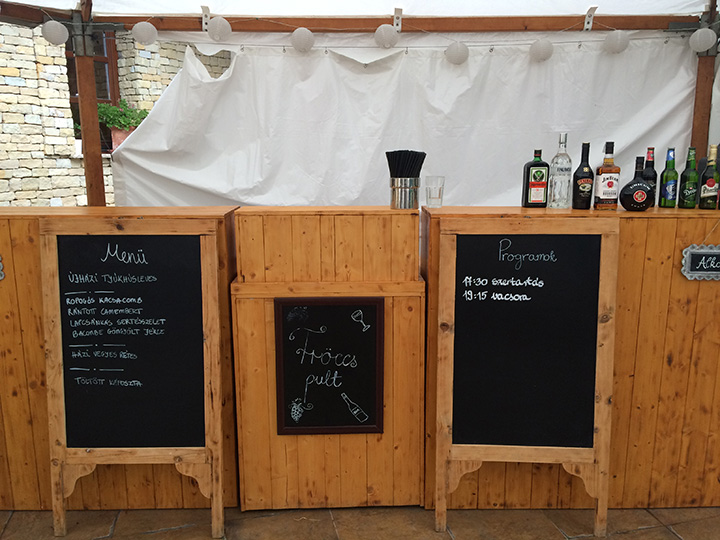 Menü
ÚJHÁZI TYÚKHÚSLEVES
ROPOGÓS KACSACOMB
RÁNTOTT CAMEMBERT
LAPCSÁNKÁS SERTÉSSZELET
BACONBE GÖNGYÖLT JÉRCE
HÁZI VEGYES RÉTES
TÖLTÖTT KÁPOSZTA
Fröccs
pult
Programok
17:30 szertartás
19:15 vacsora